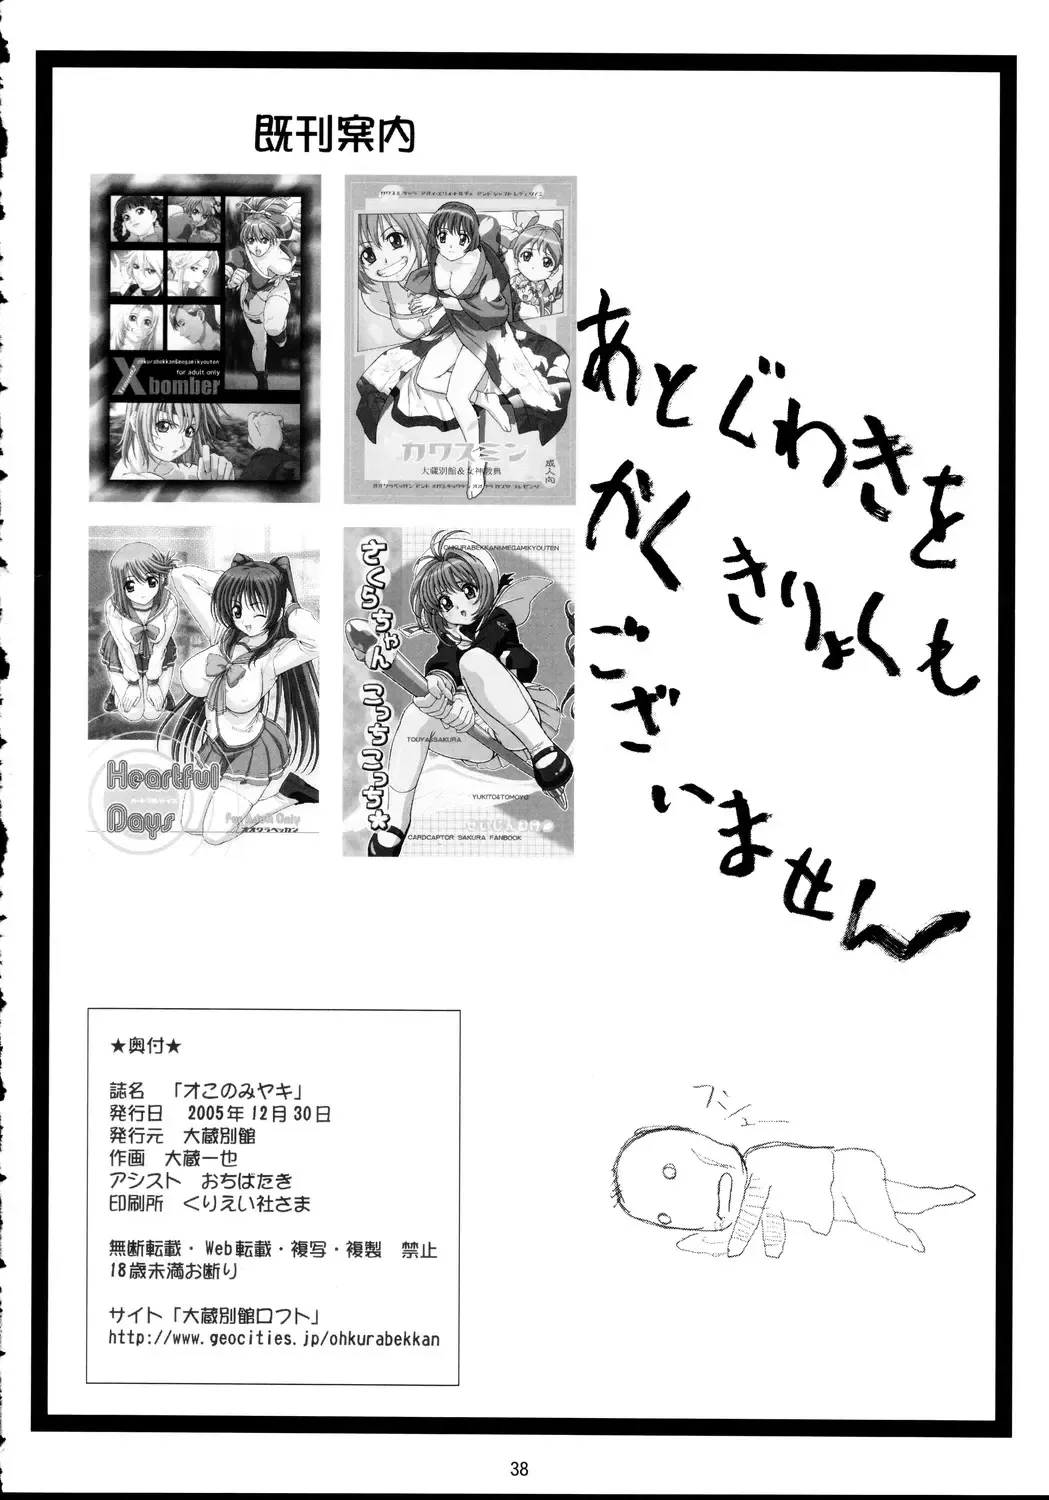 既刊案内
ohkurabekkan&megamikyouten
for adult only
X bomber
カワスミン
大蔵別館&女神教典
成人向
Heartful Days
ハートフルデイズ
For Adult Only
オオクラベッカン
OHKURABEKKAN&MEGAMIKYOUTEN
さくらちゃん
こっちこっち★
TOUYA&SAKURA
YUKITO&TOMOYO
CARDCAPTOR SAKURA FANBOOK
あとぐわきを
かくきりょくも
ございません
フシュー
★奥付★
誌名 「オこのみヤキ」
発行日 2005年12月30日
発行元 大蔵別館
作画 大蔵一也
アシスト おちばたき
印刷所 くりえい社さま
無断転載・Web転載・複写・複製 禁止
18歳未満お断り
サイト「大蔵別館ロフト」
http://www.geocities.jp/ohkurabekkan
38